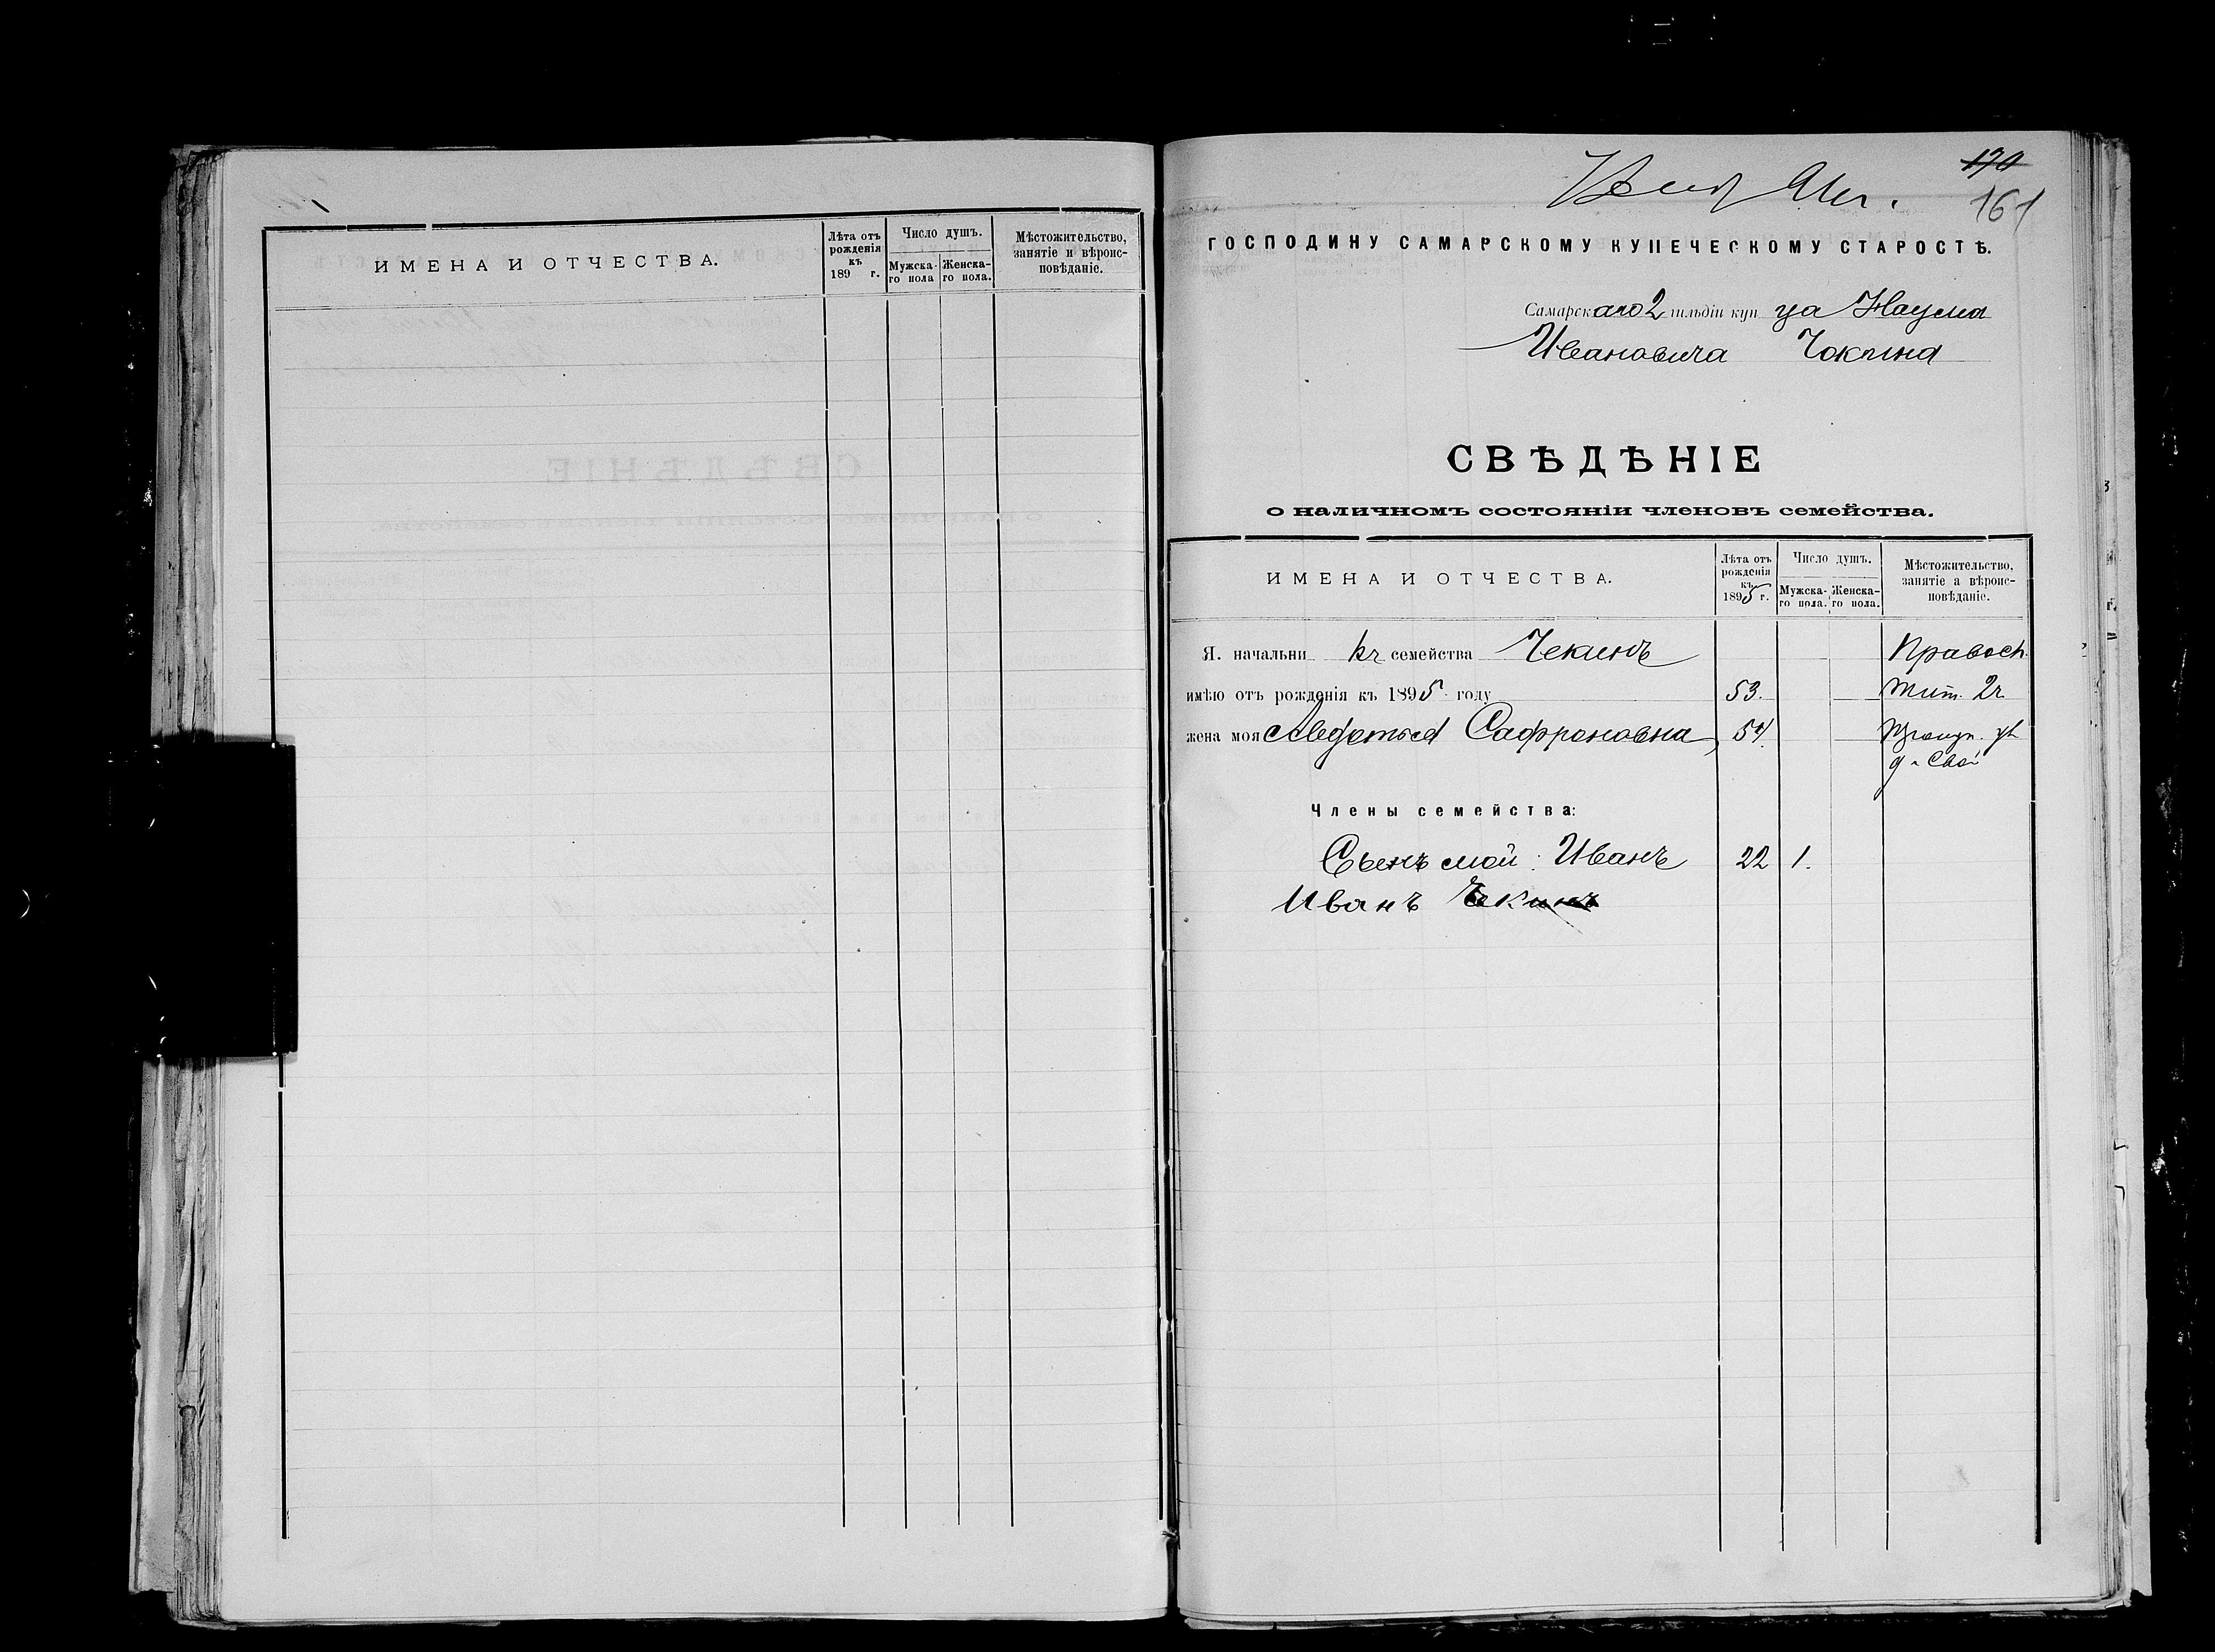 ИМЕНА И ОТЧЕСТВА.
Лѣта отъ рожденія къ 189 г.
Число душъ.
Мужска-го пола
Женска-го пола.
Мѣстожительство, занятіе и вѣроис-повѣданіе.
170
161
ГОСПОДИНУ САМАРСКОМУ КУПЕЧЕСКОМУ СТАРОСТѢ.
Самарскаго 2 гильдіи купца Наума
Ивановича Чекина
СВѢДѢНІЕ
о наличномъ состояніи членовъ семейства.
ИМЕНА И ОТЧЕСТВА.
Лѣта отъ рожденія къ 1895 г.
Число душъ.
Мужска-го пола.
Женска-го пола.
Мѣстожительство, занятіе а вѣроис-повѣданіе.
Я. начальникъ семейства Чекинъ Правосл.
имѣю отъ рожденія къ 1895 году 53. жит. 2ч.
жена моя Авдотья Сафроновна, 54.
д. Свой
Члены семейства:
Сынъ мой: Иванъ 22 1.
Иванъ Чекинъ